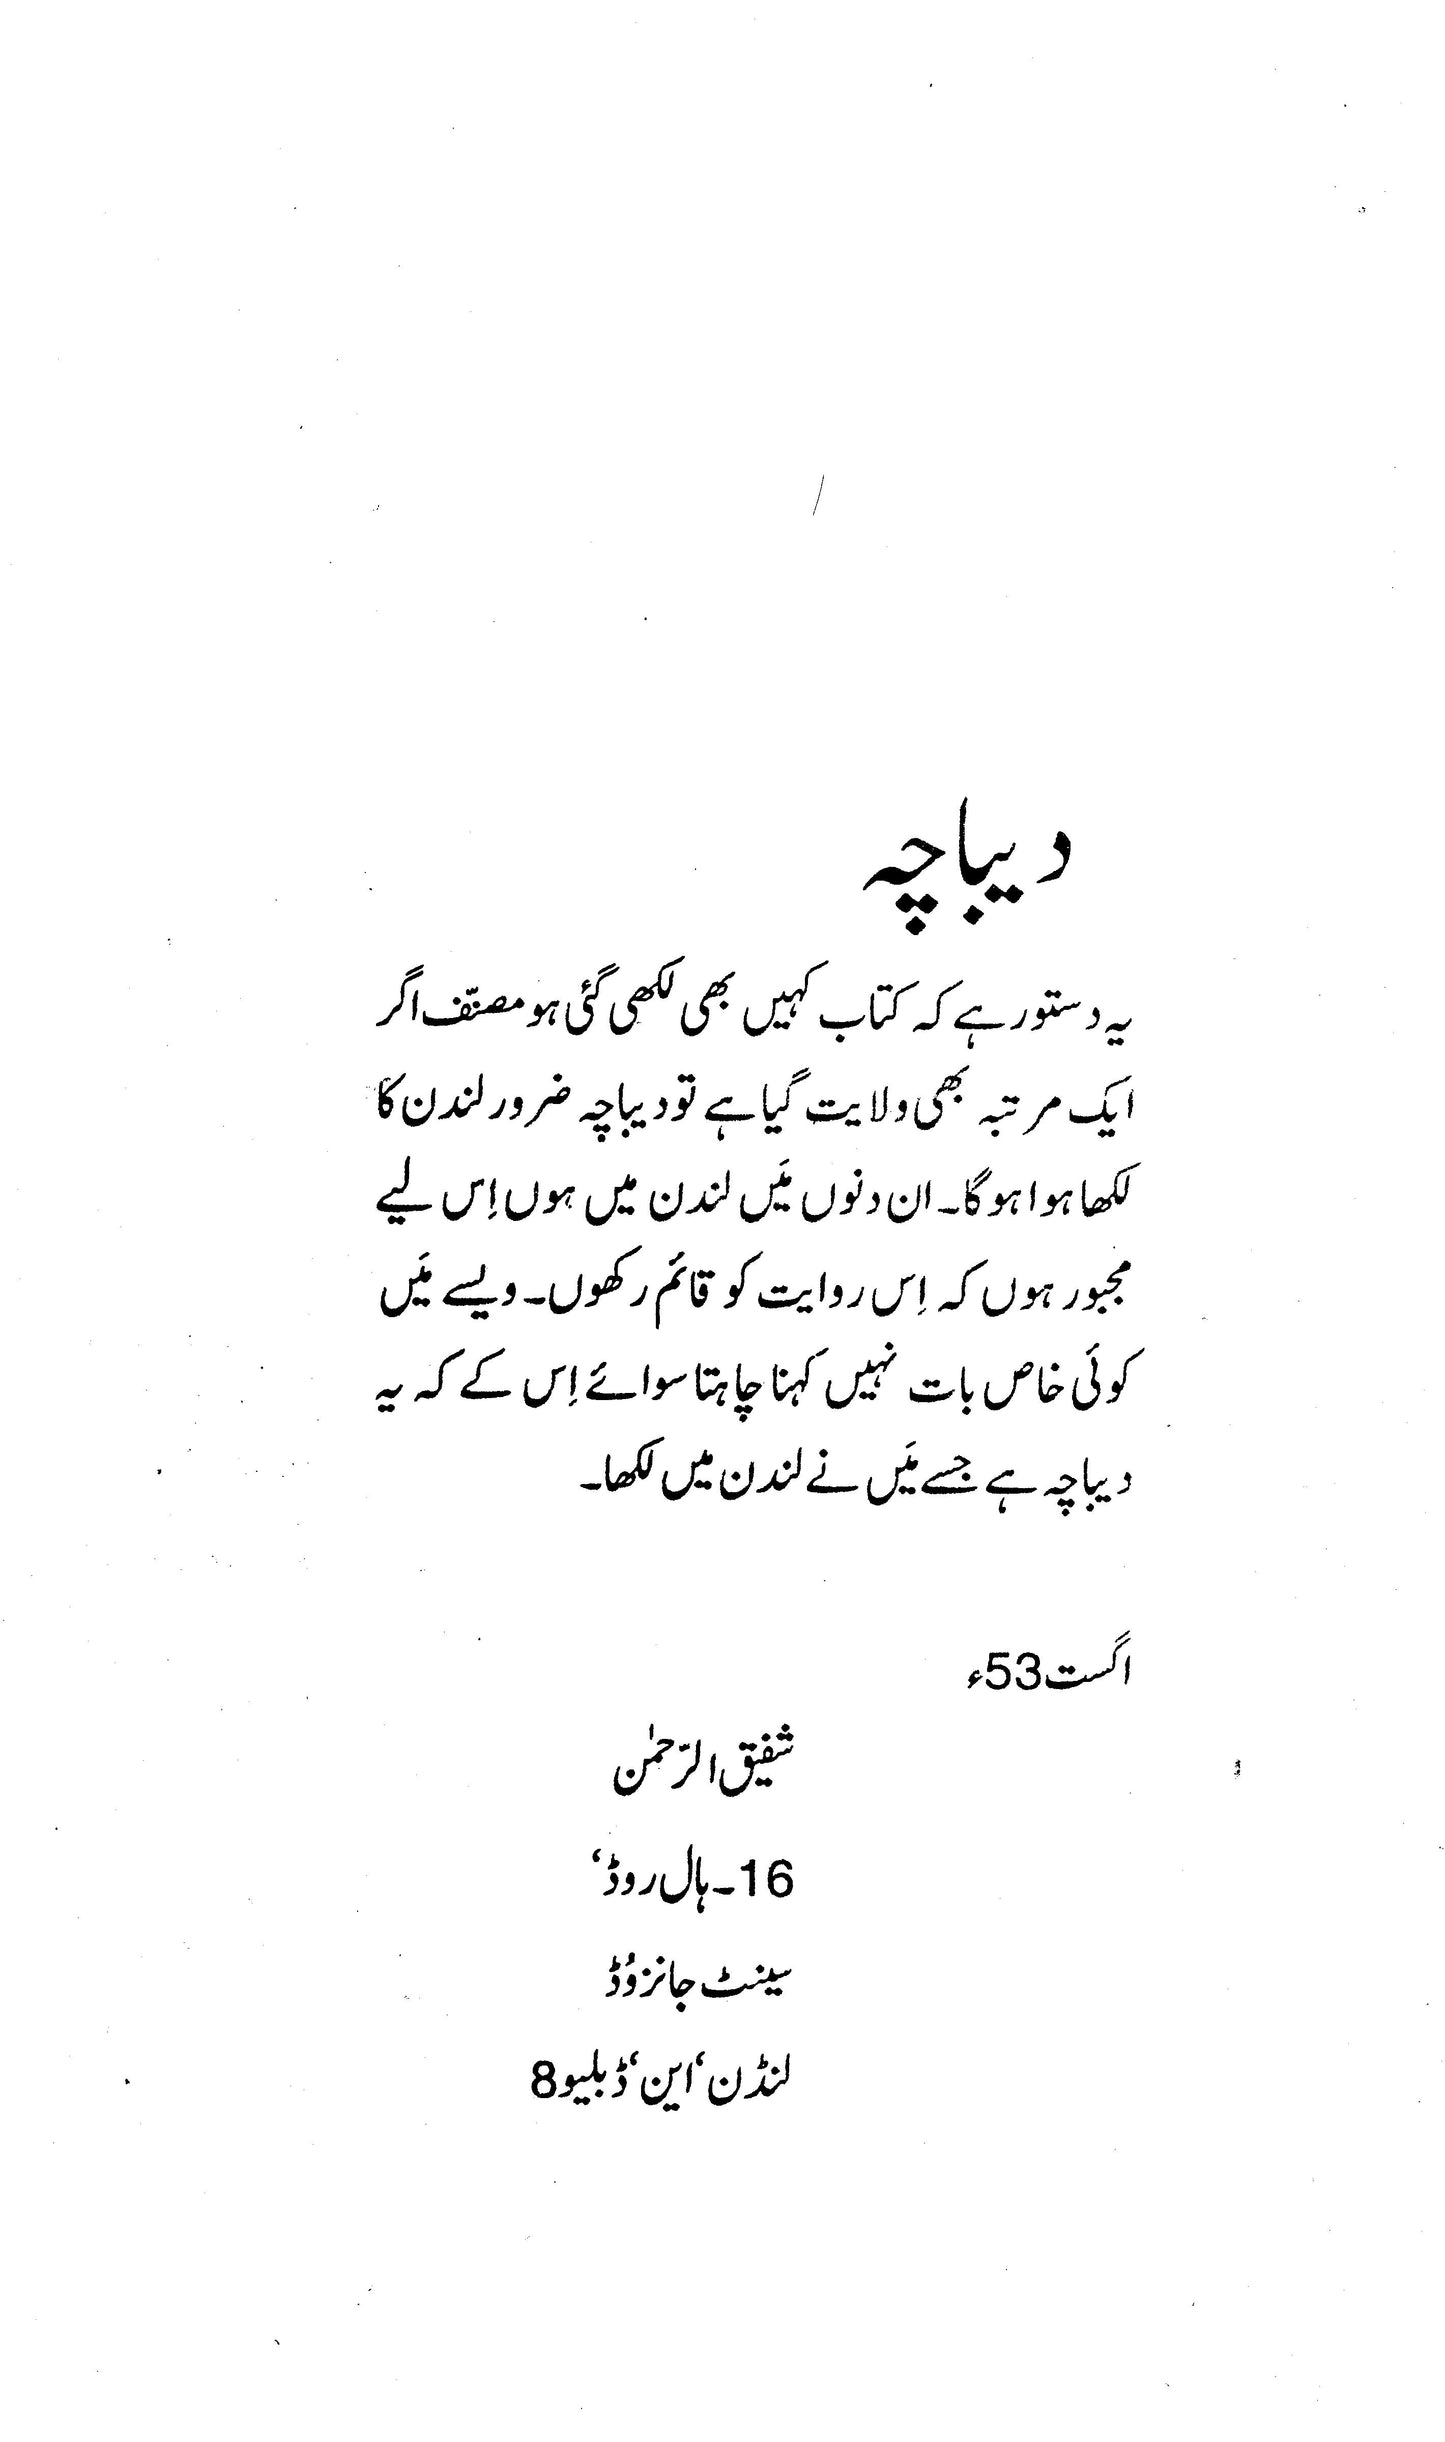 دیباچہ
یہ دستور ہے کہ کتاب کہیں بھی لکھی گئی ہو مصنّف اگر
ایک مرتبہ بھی ولایت گیا ہے تو دیباچہ ضرور لندن کا
لکھا ہوا ہوگا۔ ان دنوں مَیں لندن میں ہوں اِس لیے
مجبور ہوں کہ اِس روایت کو قائم رکھوں۔ ویسے مَیں
کوئی خاص بات نہیں کہنا چاہتا سوائے اِس کے کہ یہ
دیباچہ ہے جسے مَیں نے لندن میں لکھا۔
اگست 53ء
شفیق الرّحمٰن
16۔ ہال روڈ‘
سینٹ جانز وُڈ
لنڈن‘ این‘ ڈبلیو 8